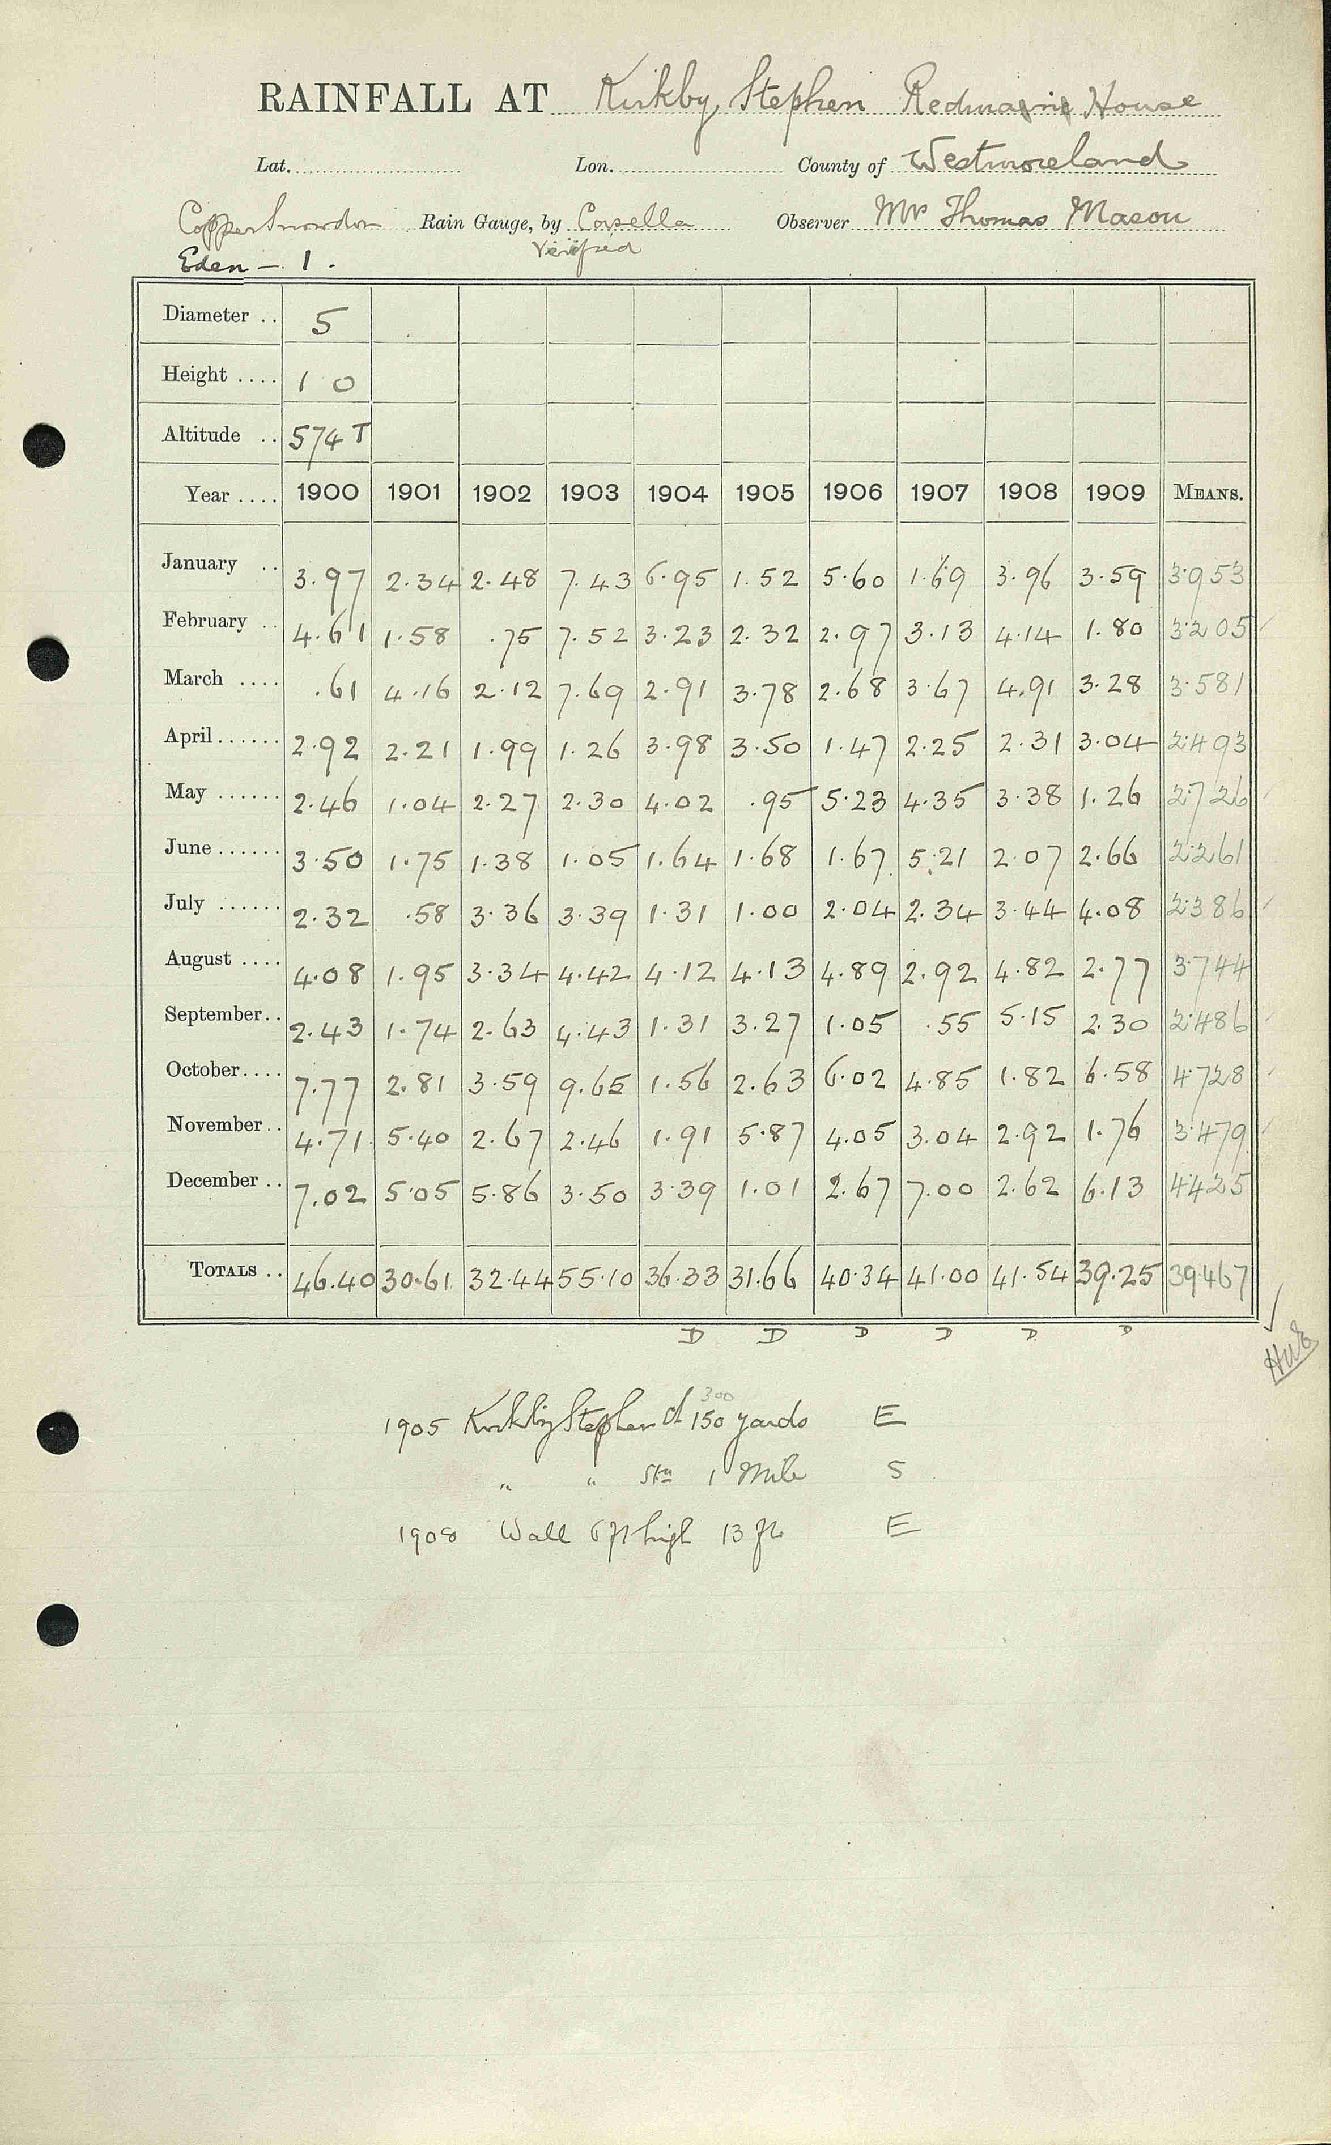 RAINFALL AT Kirkby Stephen Redmayne House
Lat. Lon. County of Westmoreland
Copper Snowdon Rain Gauge, by Casella Observer Mr Thomas Mason
Eden - 1. Verified
Diameter .. 5
Height .... 1 0
Altitude .. 574 T
Year .... 1900 1901 1902 1903 1904 1905 1906 1907 1908 1909 MEANS.
January .. 3.97 2.34 2.48 7.43 6.95 1.52 5.60 1.69 3.96 3.59 3.953
February .. 4.61 1.58 .75 7.52 3.23 2.32 2.97 3.13 4.14 1.80 3.205
March .... .61 4.16 2.12 7.69 2.91 3.78 2.68 3.67 4.91 3.28 3.581
April ...... 2.92 2.21 1.99 1.26 3.98 3.50 1.47 2.25 2.31 3.04 2.493
May ...... 2.46 1.04 2.27 2.30 4.02 .95 5.23 4.35 3.38 1.26 2.726
June ...... 3.50 1.75 1.38 1.05 1.64 1.68 1.67 5.21 2.07 2.66 2.261
July ...... 2.32 .58 3.36 3.39 1.31 1.00 2.04 2.34 3.44 4.08 2.386
August .... 4.08 1.95 3.34 4.42 4.12 4.13 4.89 2.92 4.82 2.77 3.744
September .. 2.43 1.74 2.63 4.43 1.31 3.27 1.05 .55 5.15 2.30 2.486
October .... 7.77 2.81 3.59 9.65 1.56 2.63 6.02 4.85 1.82 6.58 4.728
November .. 4.71 5.40 2.67 2.46 1.91 5.87 4.05 3.04 2.92 1.76 3.479
December .. 7.02 5.05 5.86 3.50 3.39 1.01 2.67 7.00 2.62 6.13 4.425
TOTALS .. 46.40 30.61 32.44 55.10 36.33 31.66 40.34 41.00 41.54 39.25 39.467
D D D D D D
300
1905 Kirkby Stephen ch 150 yards E
" " Sta 1 Mile S
1908 Wall 6 ft high 13 ft E